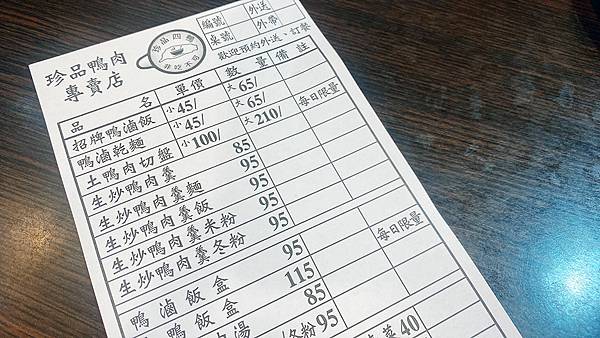 珍品鴨肉
專賣店
珍品四鴨
非吃不可
編號 外送
桌號 外帶
歡迎預約外送、訂餐
品名 單價 數量 備註
招牌鴨滷飯 小45/ 大65/
鴨滷乾麵 小45/ 大65/ 每日限量
土鴨肉切盤 小100/ 大210/
生炒鴨肉羹 85
生炒鴨肉羹麵 95
生炒鴨肉羹飯 95
生炒鴨肉羹米粉 95
生炒鴨肉羹冬粉 95
鴨滷飯盒 95 每日限量
鴨飯盒 115
肉湯 85
冬粉 95
菜 40